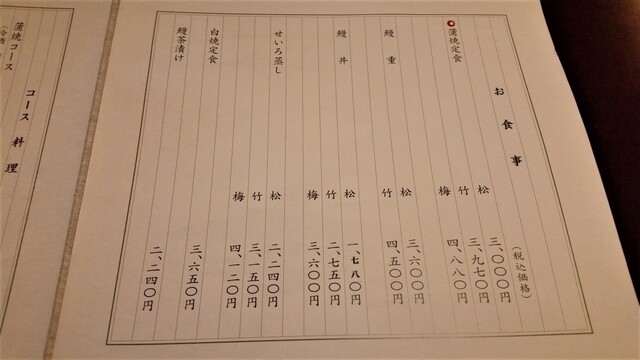 お食事
(税込価格)
蒲焼定食 松 三、〇〇〇円
竹 三、九七〇円
梅 四、八八〇円
鰻重 松 三、六〇〇円
竹 四、五〇〇円
鰻丼 松 一、七八〇円
竹 二、七五〇円
梅 三、六〇〇円
せいろ蒸し 松 二、二四〇円
竹 三、一五〇円
梅 四、一二〇円
白焼定食 三、六五〇円
鰻茶漬け 二、二四〇円
コース料理
蒲焼コース